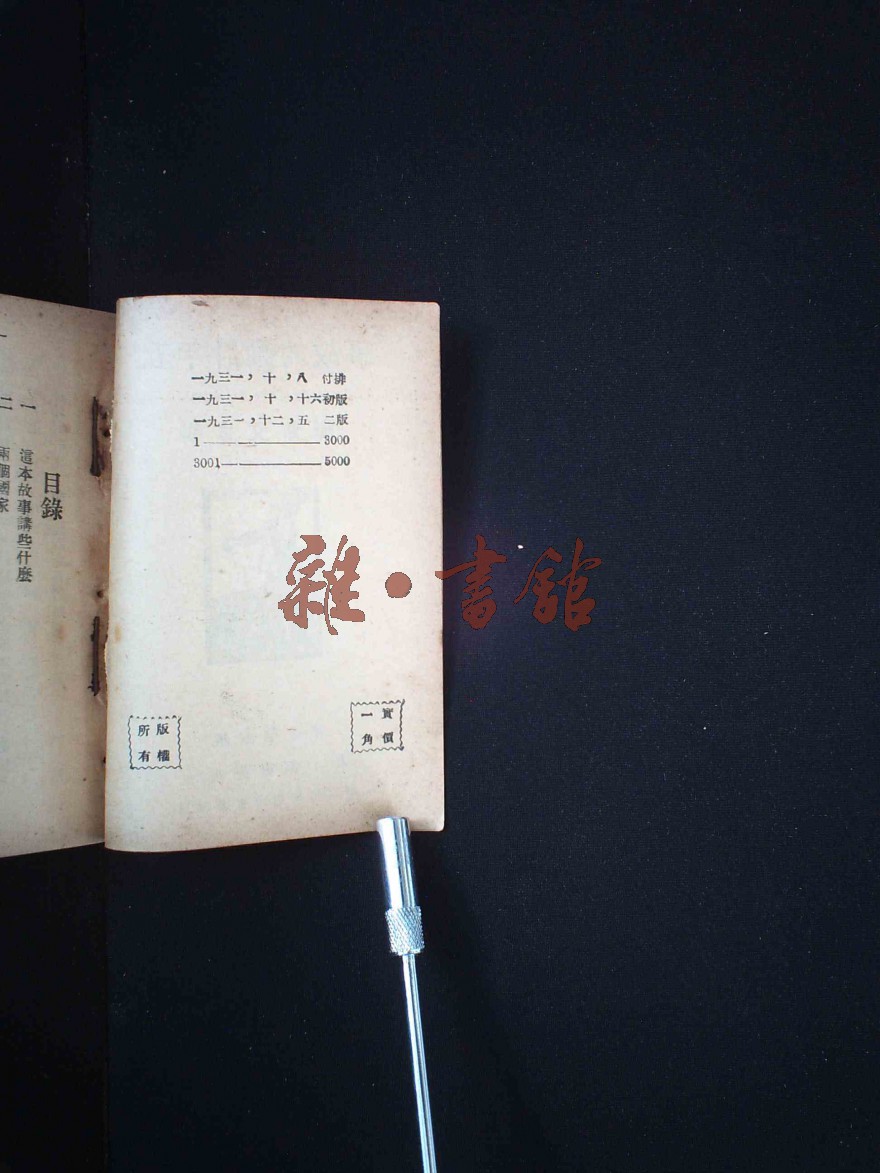 一九三一，十，八　付排
一九三一，十，十六初版
一九三一，十二，五　二版
1————3000
3001————5000
實價
一角
版權
所有
目錄
一　這本故事講些什麼
二　兩個國家
雜•書館